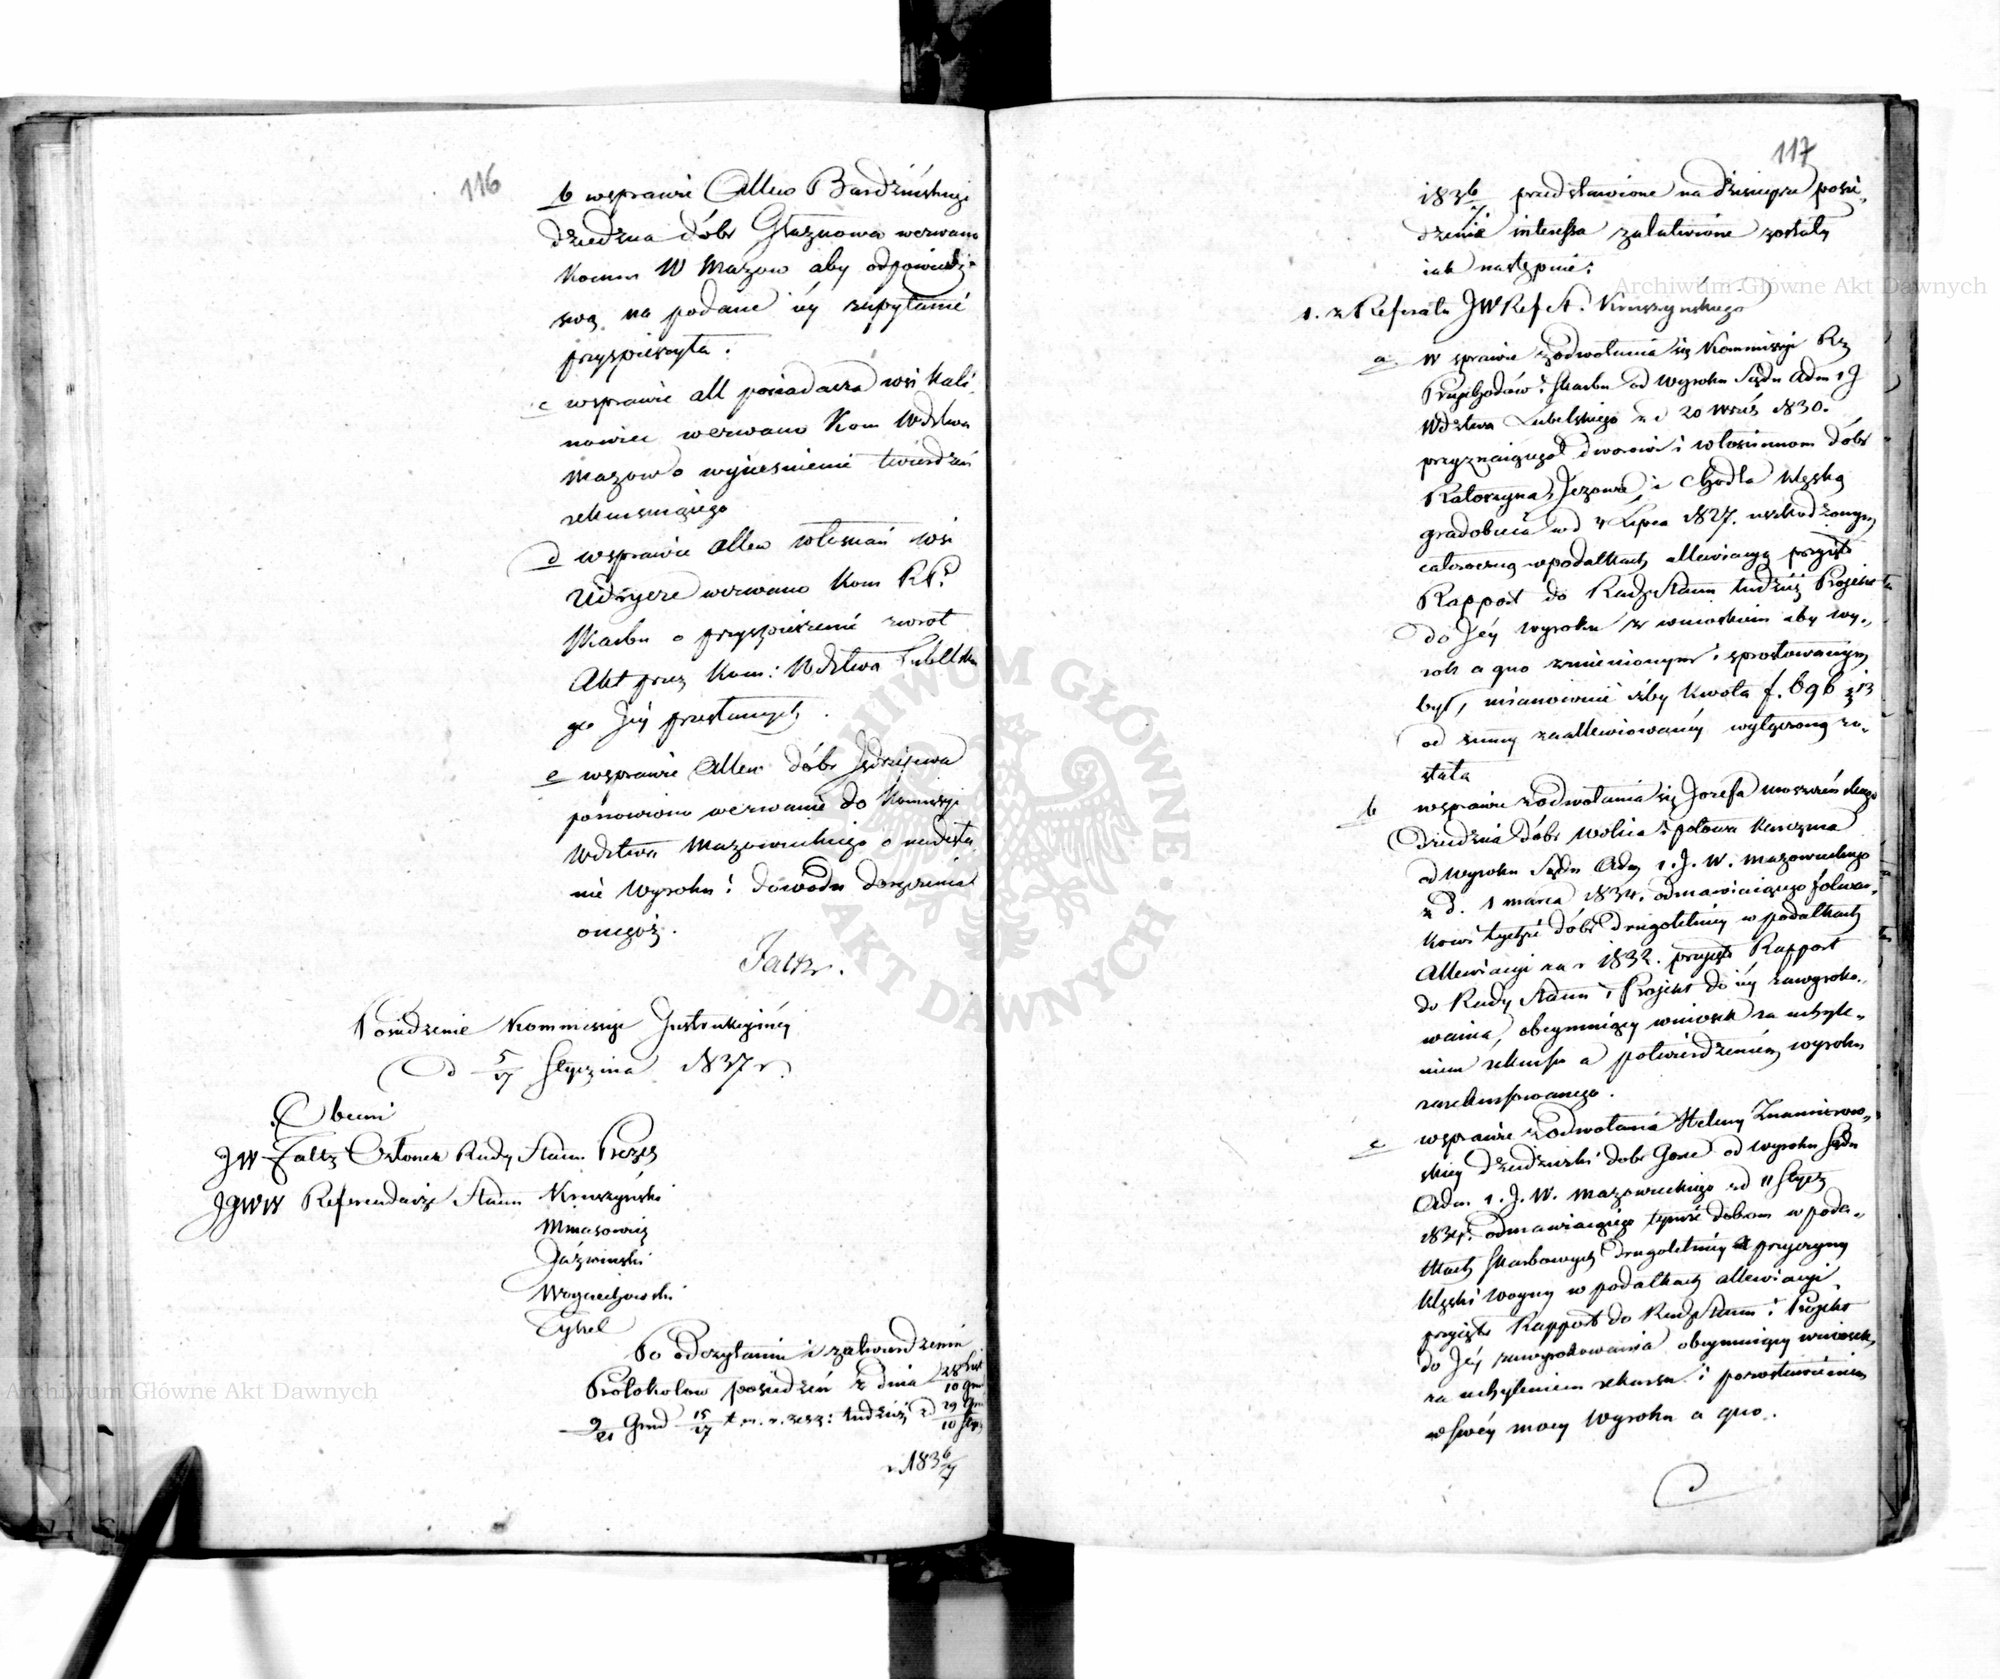 116
b wsprawie Allew Bardzińskiego
dziedzica dóbr Głaznowa wezwano
Komm W Mazow aby odpowiedź
swą na podane iéy zapytanie
przyspieszyła.
c wsprawie all posiadacza wsi Kali-
nowiec wezwano Kom Wdztwa
Mazow o wyjaśnienie twierdzeń
rekursuiącego
d wsprawie Allew włościan wsi
Udrycze wezwano Kom RP i
Skarbu o przyspieszenie zwrot
Akt przez Kom: Wdztwa Lubelskie
go Jéy przesłanych.
e wsprawie Allew dóbr Jędrzejewa
ponowiono wezwanie do Komissyi
Wdztwa Mazowieckiego o nadesła
nie Wyroku i dowodu doręczenia
onegóż.
Faltz.
Posiedzenie Kommissyi Instrukcyinéy
d 5/17 Stycznia 1837 r.
Obecni
JW Faltz Członek Rady Stanu Prezes
JJWW Referendarze Stanu Kruszyński
Jaźwinski
Woyciechowski
Tykel
Po odczytaniu i zatwierdzeniu
Protokołow posiedzeń z dnia 28 List / 10 Gru
9/21 Grud 15/27 t. m. r. zesz: tudzież d 29 Gru / 10 Stycz
r. 1836/7
117
1836/7 przedstawione na dzisieysze posie-
dzenie interessa załatwione zostały
iak następnie:
1. z Referatu JW Ref St. Kruszynskiego
a W sprawie zodwołania się Kommissyi Rz
Przychodów i Skarbu od Wyroku Sądu Adm 1 J
Wdztwa Lubelskiego z d 20 Wrześ 1830.
przyznaiącego dworowi i włościanom dóbr
Katarzyna, Jezowa i Chodla klęską
gradobicia w d 4 Lipca 1827. uszkodzonym
całoroczną w podatkach allewiacyą przyięto
Rapport do Rady Stanu tudzież Projekt
do Jéy Wyroku z wnioskiem aby wy-
rok a quo zmienionym i sprostowanym
był, mianowicie ażby kwota f. 696 g 13
od summy zaallewiowanéy wyłączoną zo-
stała
b wsprawie zodwołania się Jozefa Moszczeńskiego
Dziedzica dóbr Wolica i połowa Karczma
od Wyroku Sądu Adm 1. J. W. Mazowieckiego
z d. 1 Marca 1834. odmawiaiącego folwar-
kowi tychże dóbr drugoletniéy w podatkach
Allewiacyi za r 1832. przyięto Rapport
do Rady Stanu i Projekt do iéy zawyroko-
wania, obeymuiący wniosek za uchyle-
niem rekursu a potwierdzeniem wyroku
zarekursowanego.
c wsprawie zodwołania Heleny Znamierow-
skiey dziedziczki dobr Gore od wyroku Sądu
Adm. 1. J. W. Mazowieckiego z d 11 Stycz
1834. odmawiaiącego tymże dobrom w poda-
tkach Skarbowych drugoletniéy z przyczyny
klęski woyny w podatkach allewiacyi
przyięto Rapport do Rady Stanu i Projekt
do Jéy zawyrokowania obeymuiący wniosek
za uchyleniem rekursu i pozostawieniem
w swéy mocy Wyroku a quo.
d
ARCHIWUM GŁÓWNE AKT DAWNYCH
Archiwum Główne Akt Dawnych
Archiwum Główne Akt Dawnych